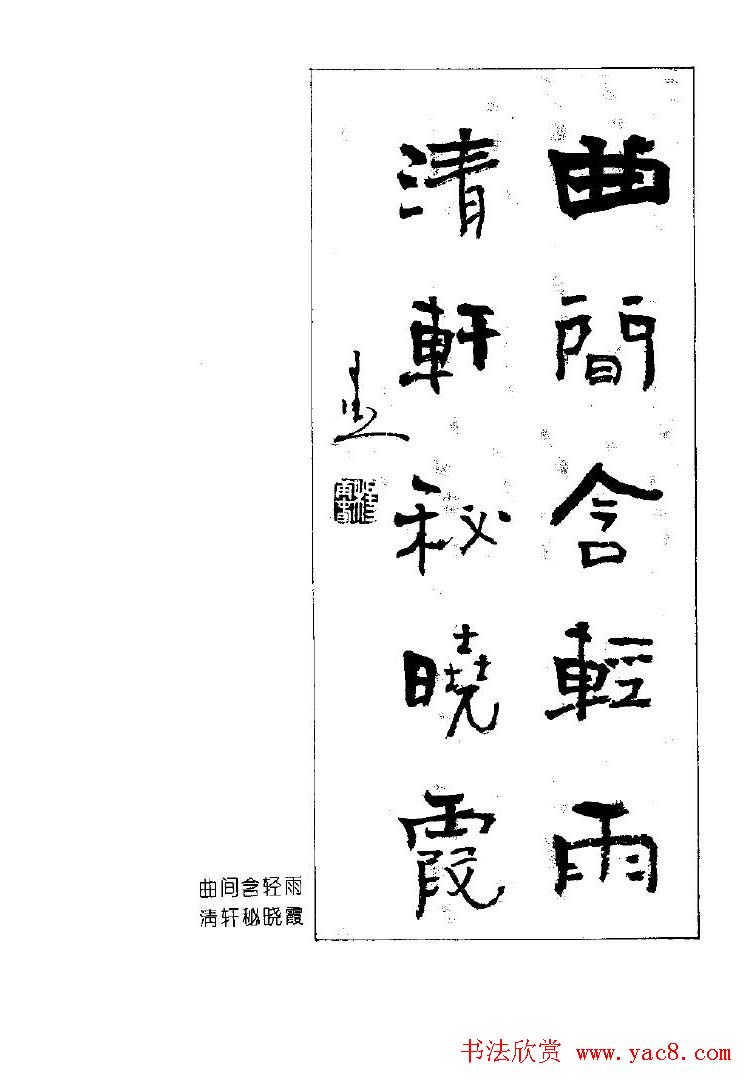 曲間含輕雨
清軒秘曉霞
曲间含轻雨
清轩秘晓霞
书法欣赏 www.yac8.com